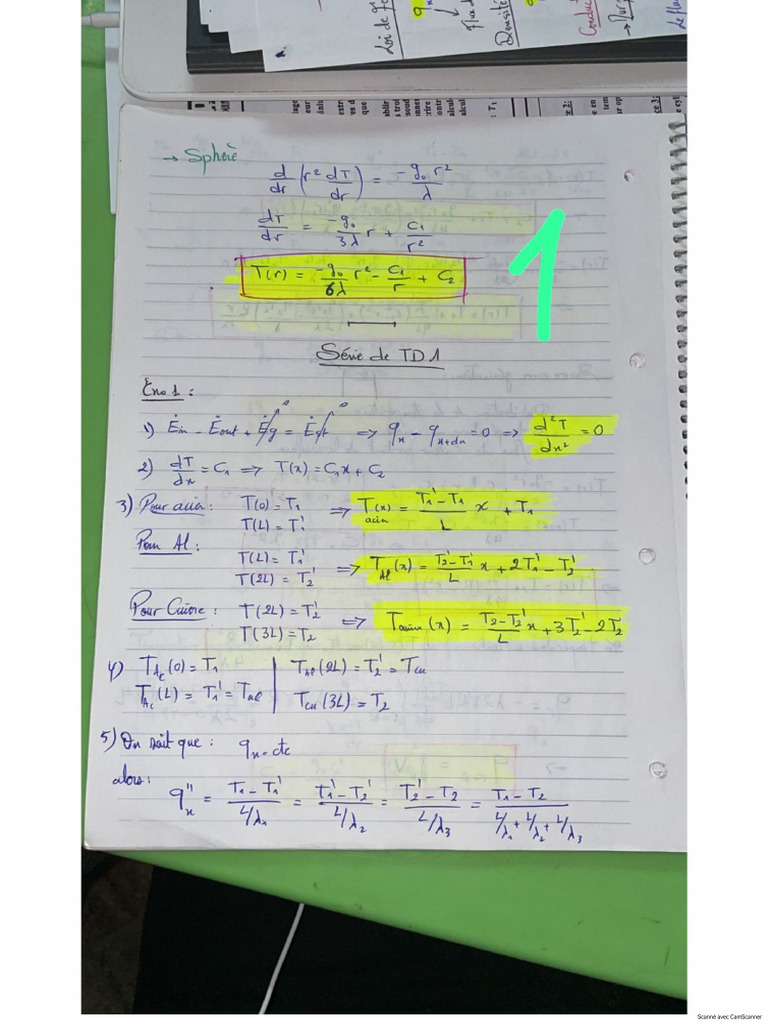 → Sphère
d/dr (r² dT/dr) = -g₀ r²/λ
dT/dr = -g₀/3λ r + C₁/r²
T(r) = -g₀/6λ r² - C₁/r + C₂
1
Série de TD1
Exo1:
1) Ėin - Ėout + Ėg = Ėst ⇒ qx - qx+dx = 0 ⇒ d²T/dx² = 0
2) dT/dx = C₁ ⇒ T(x) = C₁x + C₂
3) Pour acier: T(0) = T₁ ⇒ T(x) acier = T₁' - T₁/L x + T₁
T(L) = T₁'
Pour Al: T(L) = T₁' ⇒ T Al (x) = T₂' - T₁'/L x + 2T₁' - T₂'
T(2L) = T₂'
Pour Cuivre: T(2L) = T₂' ⇒ T cuivre (x) = T₂ - T₂'/L x + 3T₂' - 2T₂
T(3L) = T₂
4) TAc(0) = T₁ | TAl(2L) = T₂' = Tcu
TAc(L) = T₁' = Tal | Tcu(3L) = T₂
5) On sait que: qx = cte
alors: q''x = T₁ - T₁'/L/λ₁ = T₁' - T₂'/L/λ₂ = T₂' - T₂/L/λ₃ = T₁ - T₂/L/λ₁ + L/λ₂ + L/λ₃
Loi de
Densité
Scanné avec CamScanner